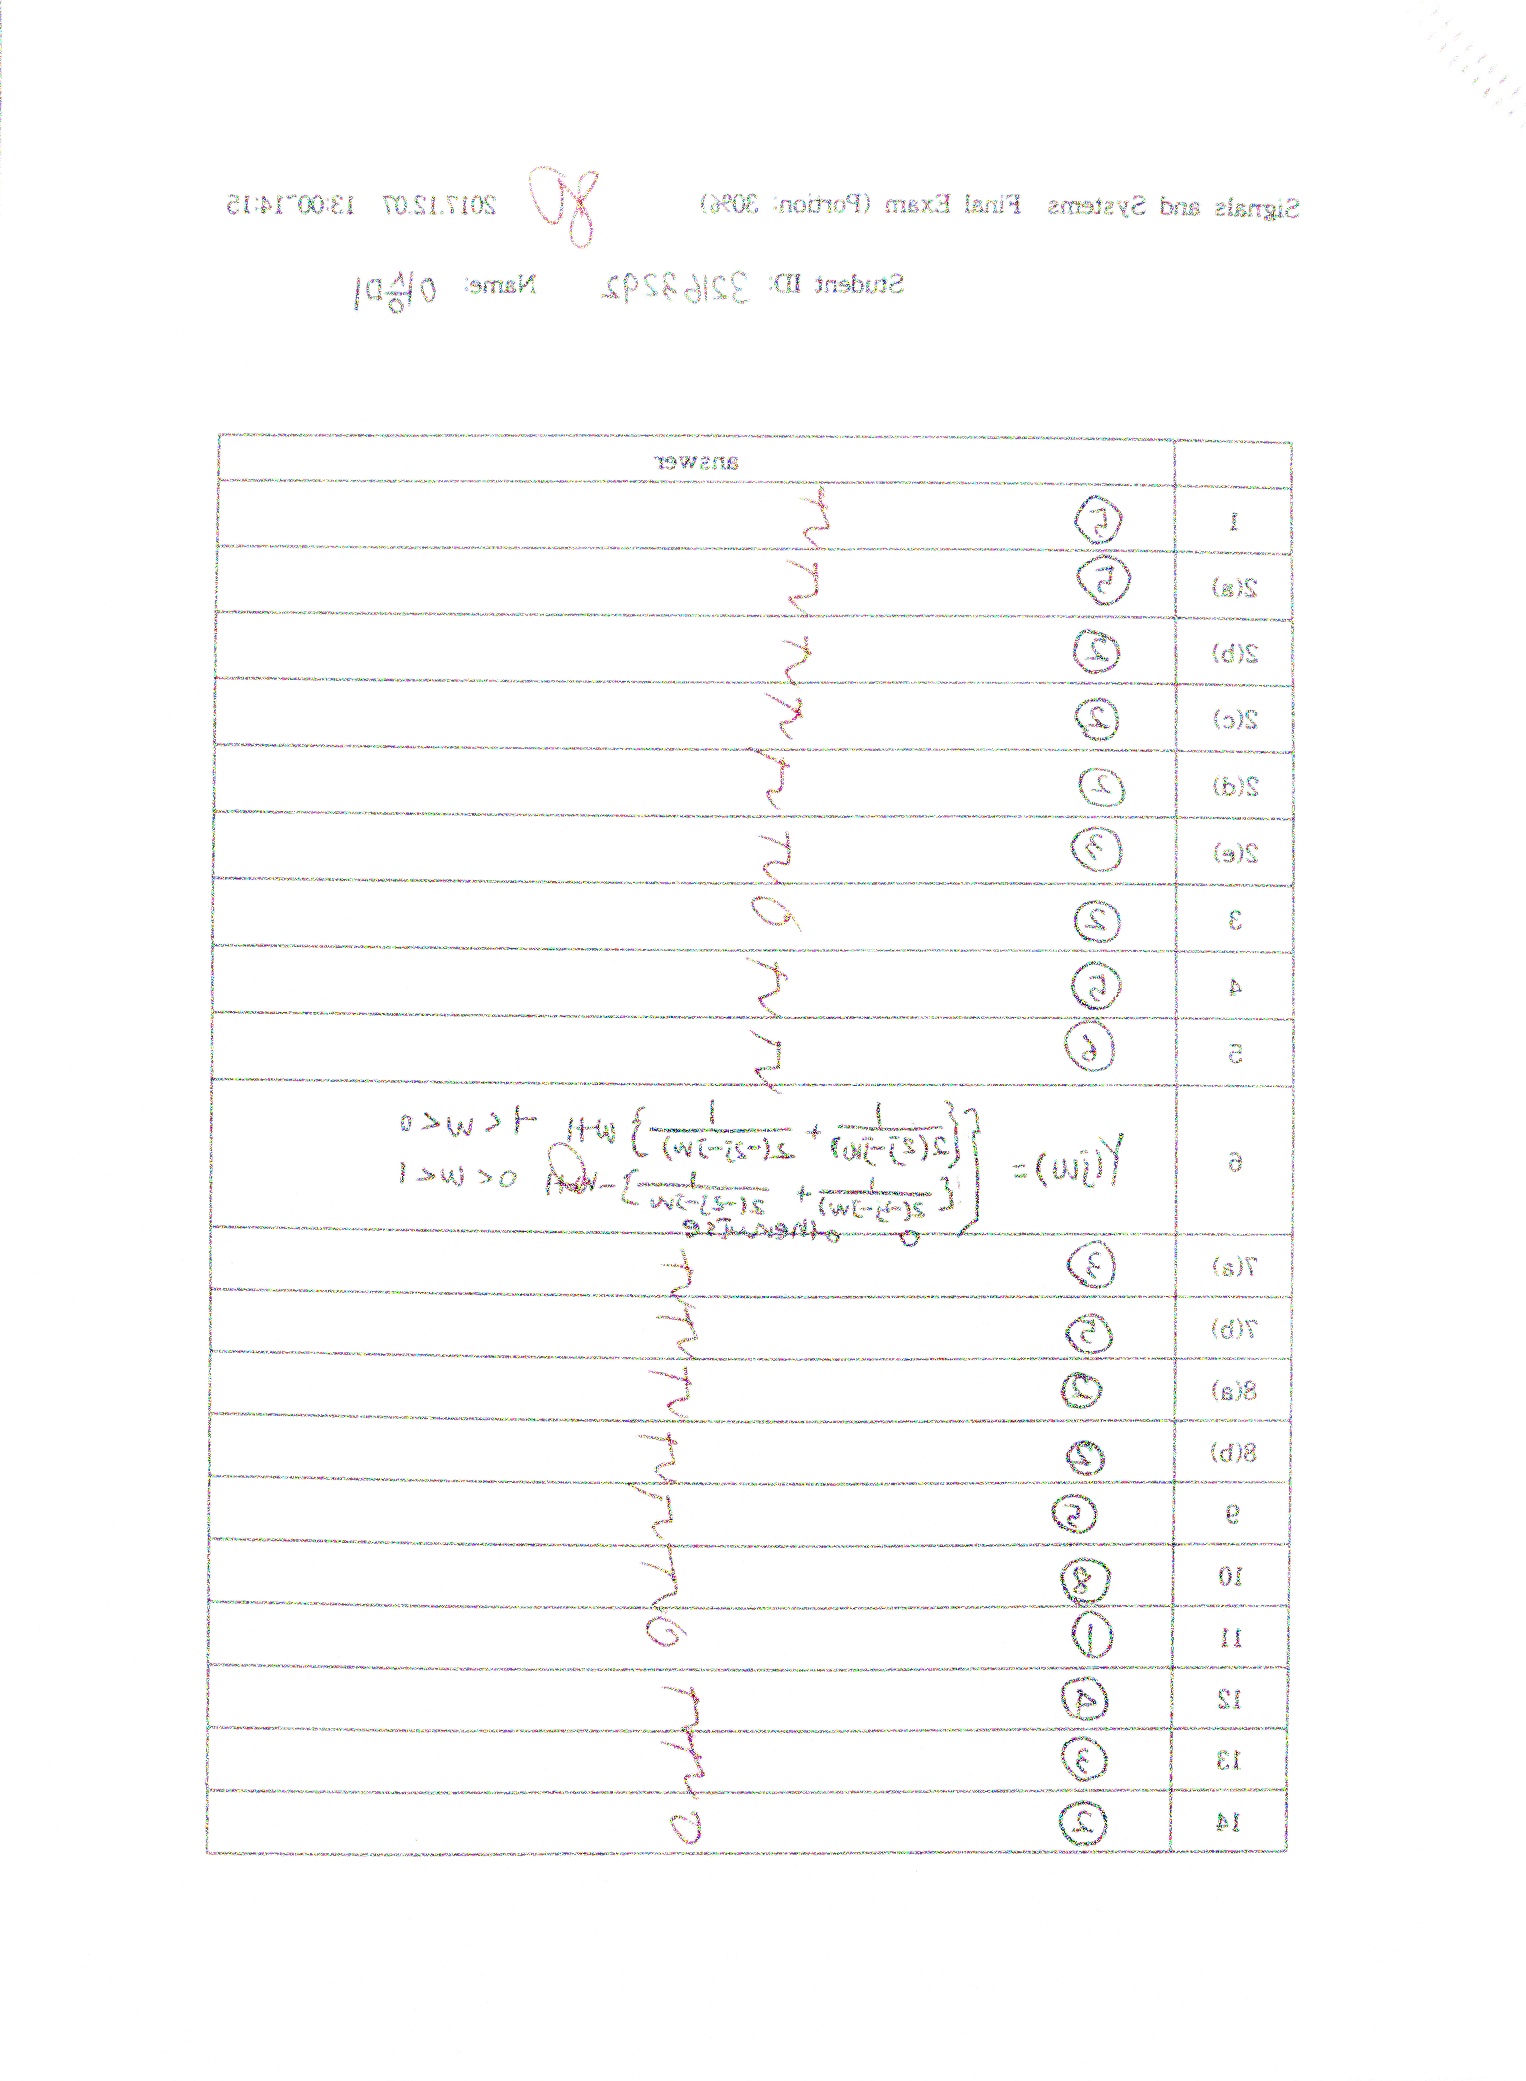 Signals and Systems Final Exam (Portion: 30%) 80 2017.12.07 13:00~14:15
Student ID: 32163292 Name:
answer
1 ⑤
2(a) ⑤
2(b) ②
2(c) ②
2(d) ②
2(e) ③
3 ②
4 ⑤
5 ⑥
6 Y(jw) =
w+1 -1<w<0
0<w<1
0 otherwise
7(a) ③
7(b) ⑤
8(a) ②
8(b)
9 ⑤
10 ⑧
11 ①
12 ④
13 ③
14 ②